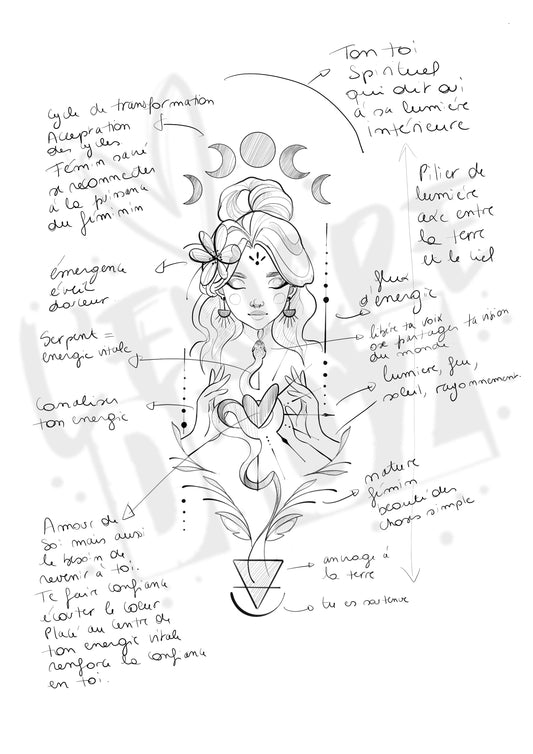 Ton toi
Spirituel
qui dit oui
à sa lumière
intérieure
Cycle de transformation
Acceptation
des cycles
Féminin sacré
se reconnecter
à la puissance
du féminin
Pilier de
lumière
axe entre
la terre
et le ciel
émergence
éveil
douceur
flux
d'énergie
Serpent =
énergie vitale
libère ta voix
ose partager ta vision
du monde
lumière, feu,
soleil, rayonnement
Canaliser
ton énergie
nature
féminin
beauté des
choses simple
Amour de
Soi mais aussi
le besoin de
revenir à toi.
Te faire confiance
écouter le cœur
Placé au centre de
ton energie vitale
renforce la confiance
en toi.
ancrage à
la terre
tu es soutenue